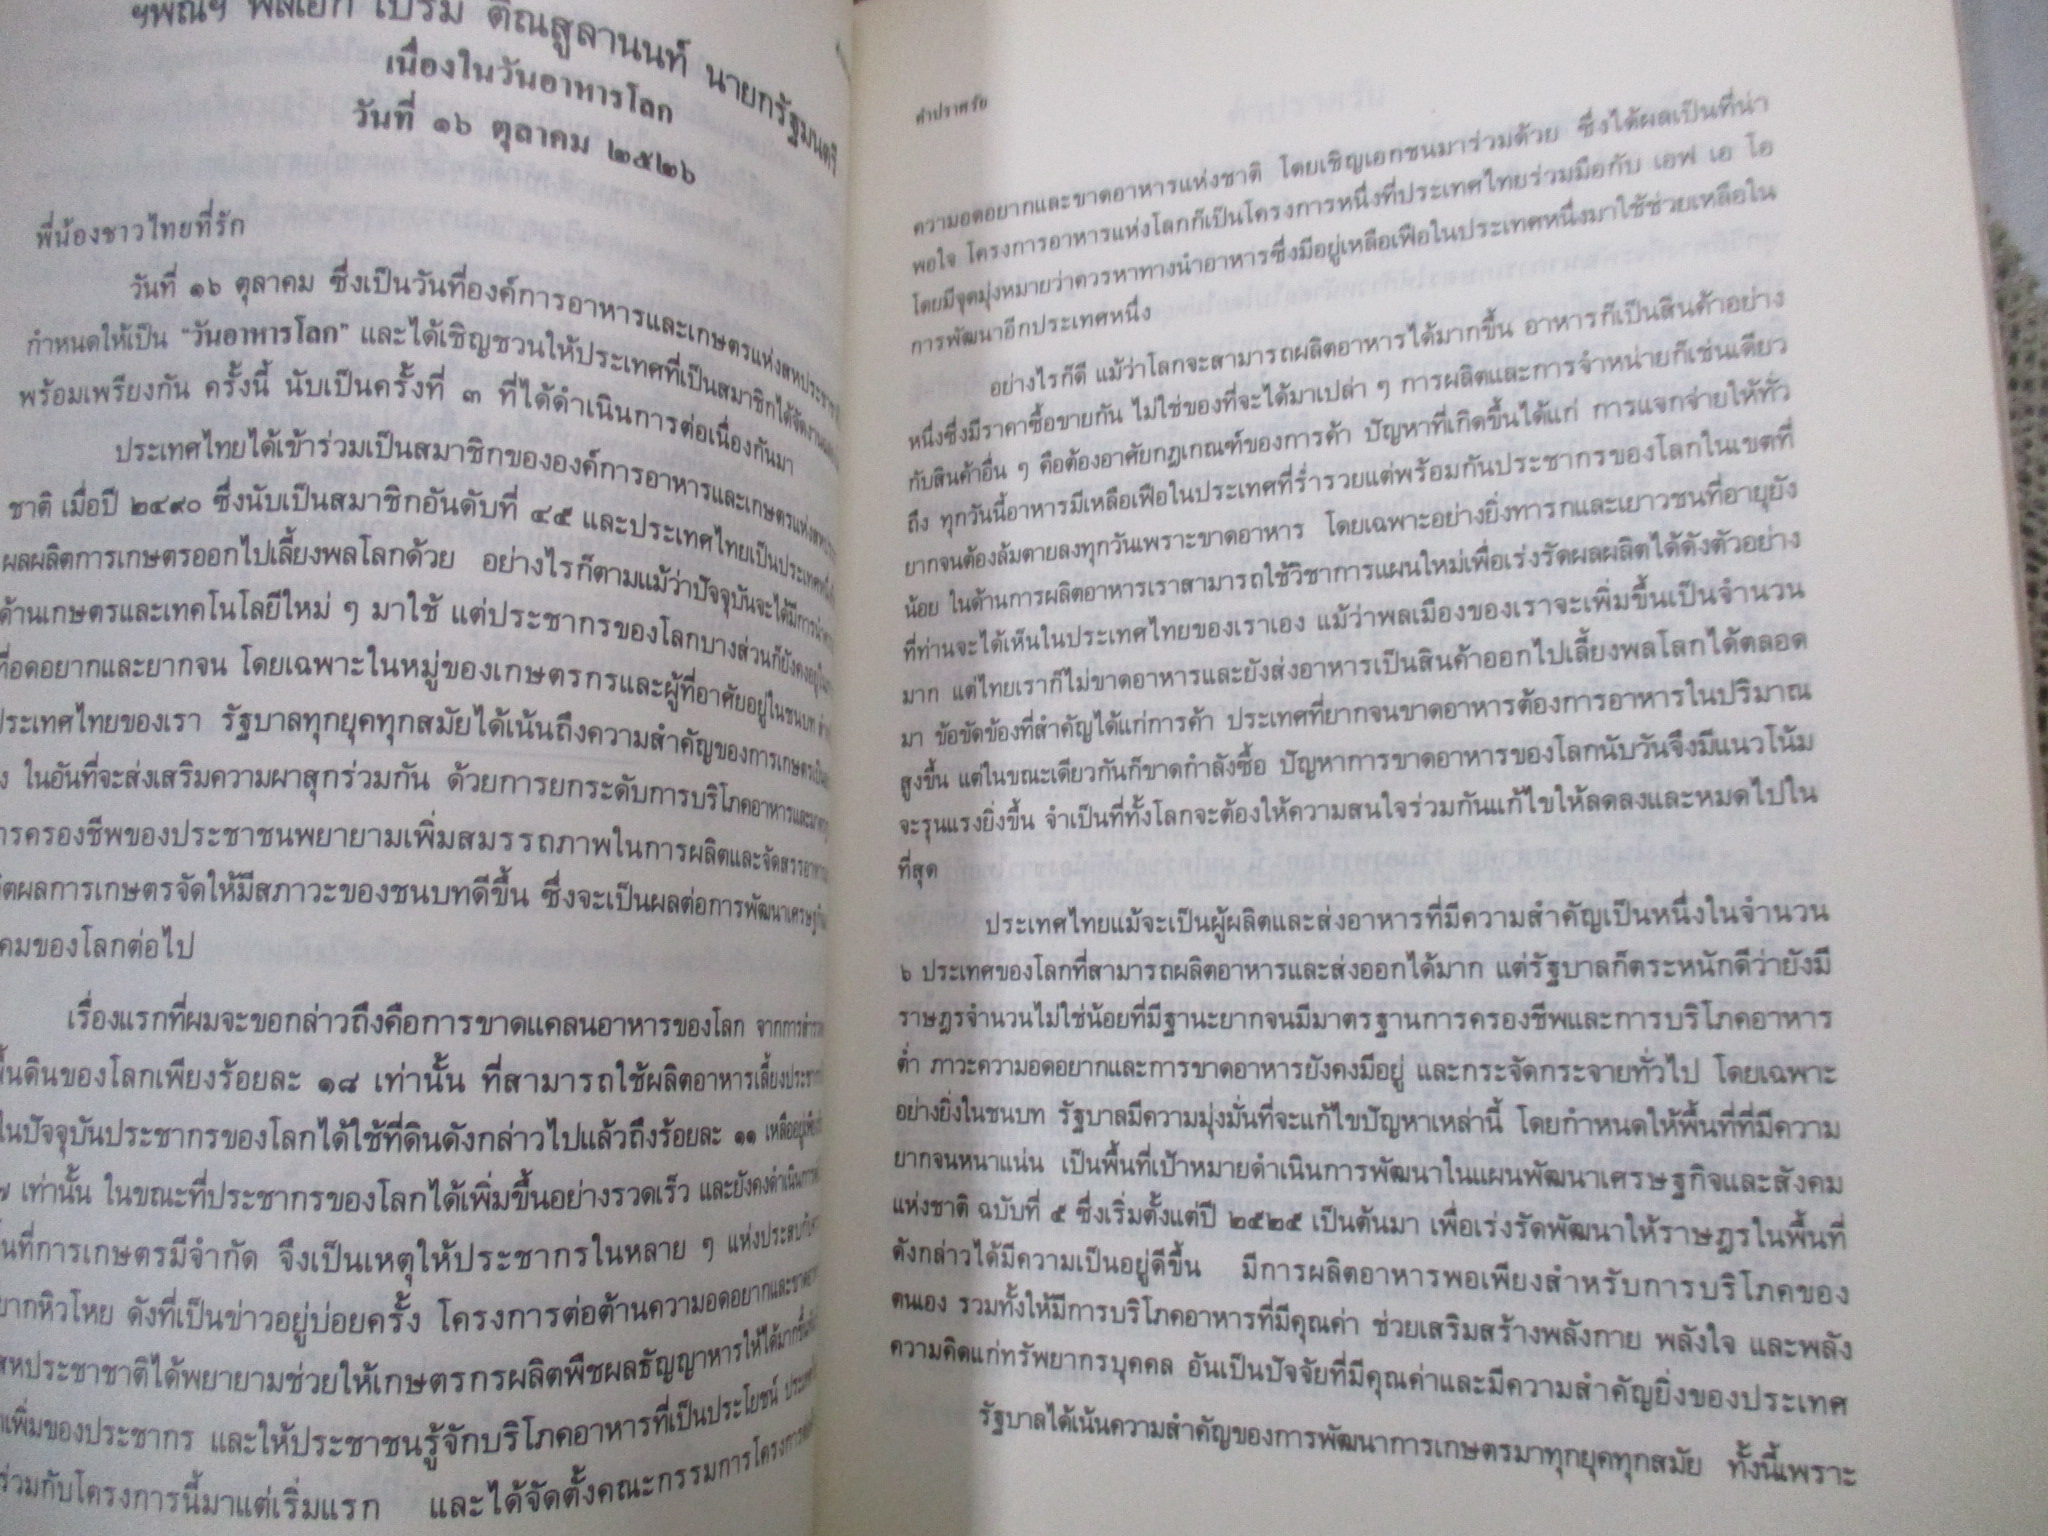 ฯพณฯ พลเอก เปรม ติณสูลานนท์ นายกรัฐมนตรี
เนื่องในวันอาหารโลก
วันที่ ๑๖ ตุลาคม ๒๕๒๖
พี่น้องชาวไทยที่รัก
วันที่ ๑๖ ตุลาคม ซึ่งเป็นวันที่องค์การอาหารและเกษตรแห่งสหประชาชาติ
กำหนดให้เป็น "วันอาหารโลก" และได้เชิญชวนให้ประเทศที่เป็นสมาชิกได้จัดงาน
พร้อมเพรียงกัน ครั้งนี้ นับเป็นครั้งที่ ๓ ที่ได้ดำเนินการต่อเนื่องกันมา
ประเทศไทยได้เข้าร่วมเป็นสมาชิกขององค์การอาหารและเกษตรแห่งสหประชา
ชาติ เมื่อปี ๒๔๙๐ ซึ่งนับเป็นสมาชิกอันดับที่ ๔๕ และประเทศไทยเป็นประเทศ
ผลผลิตการเกษตรออกไปเลี้ยงพลโลกด้วย อย่างไรก็ตามแม้ว่าปัจจุบันจะได้มีการ
ด้านเกษตรและเทคโนโลยีใหม่ ๆ มาใช้ แต่ประชากรของโลกบางส่วนก็ยังคงอยู่
ที่อดอยากและยากจน โดยเฉพาะในหมู่ของเกษตรกรและผู้ที่อาศัยอยู่ในชนบท
ประเทศไทยของเรา รัฐบาลทุกยุคทุกสมัยได้เน้นถึงความสำคัญของการเกษตร
ง ในอันที่จะส่งเสริมความผาสุกร่วมกัน ด้วยการยกระดับการบริโภคอาหารและ
ารครองชีพของประชาชนพยายามเพิ่มสมรรถภาพในการผลิตและจัดสรรอาหาร
ิตผลการเกษตรจัดให้มีสภาวะของชนบทดีขึ้น ซึ่งจะเป็นผลต่อการพัฒนาเศรษฐกิจ
คมของโลกต่อไป
เรื่องแรกที่ผมจะขอกล่าวถึงคือการขาดแคลนอาหารของโลก จากการสำรวจ
ื้นดินของโลกเพียงร้อยละ ๑๘ เท่านั้น ที่สามารถใช้ผลิตอาหารเลี้ยงประชากร
ในปัจจุบันประชากรของโลกได้ใช้ที่ดินดังกล่าวไปแล้วถึงร้อยละ ๑๑ เหลืออยู่
๗ เท่านั้น ในขณะที่ประชากรของโลกได้เพิ่มขึ้นอย่างรวดเร็ว และยังคงดำเนินการ
ื้นที่การเกษตรมีจำกัด จึงเป็นเหตุให้ประชากรในหลาย ๆ แห่งประสบกับ
ยากหิวโหย ดังที่เป็นข่าวอยู่บ่อยครั้ง โครงการต่อต้านความอดอยากและขาดอาหาร
สหประชาชาติได้พยายามช่วยให้เกษตรกรผลิตพืชผลธัญญาหารให้ได้มากขึ้น
เพิ่มของประชากร และให้ประชาชนรู้จักบริโภคอาหารที่เป็นประโยชน์
ร่วมกับโครงการนี้มาแต่เริ่มแรก และได้จัดตั้งคณะกรรมการโครงการ
คำปราศรัย
ความอดอยากและขาดอาหารแห่งชาติ โดยเชิญเอกชนมาร่วมด้วย ซึ่งได้ผลเป็นที่น่า
พอใจ โครงการอาหารแห่งโลกก็เป็นโครงการหนึ่งที่ประเทศไทยร่วมมือกับ เอฟ เอ โอ
โดยมีจุดมุ่งหมายว่าควรหาทางนำอาหารซึ่งมีอยู่เหลือเฟือในประเทศหนึ่งมาใช้ช่วยเหลือใน
การพัฒนาอีกประเทศหนึ่ง
อย่างไรก็ดี แม้ว่าโลกจะสามารถผลิตอาหารได้มากขึ้น อาหารก็เป็นสินค้าอย่าง
หนึ่งซึ่งมีราคาซื้อขายกัน ไม่ใช่ของที่จะได้มาเปล่า ๆ การผลิตและการจำหน่ายก็เช่นเดียว
กับสินค้าอื่น ๆ คือต้องอาศัยกฎเกณฑ์ของการค้า ปัญหาที่เกิดขึ้นได้แก่ การแจกจ่ายให้ทั่ว
ถึง ทุกวันนี้อาหารมีเหลือเฟือในประเทศที่ร่ำรวยแต่พร้อมกันประชากรของโลกในเขตที่
ยากจนต้องล้มตายลงทุกวันเพราะขาดอาหาร โดยเฉพาะอย่างยิ่งทารกและเยาวชนที่อายุยัง
น้อย ในด้านการผลิตอาหารเราสามารถใช้วิชาการแผนใหม่เพื่อเร่งรัดผลผลิตได้ดังตัวอย่าง
ที่ท่านจะได้เห็นในประเทศไทยของเราเอง แม้ว่าพลเมืองของเราจะเพิ่มขึ้นเป็นจำนวน
มาก แต่ไทยเราก็ไม่ขาดอาหารและยังส่งอาหารเป็นสินค้าออกไปเลี้ยงพลโลกได้ตลอด
มา ข้อขัดข้องที่สำคัญได้แก่การค้า ประเทศที่ยากจนขาดอาหารต้องการอาหารในปริมาณ
สูงขึ้น แต่ในขณะเดียวกันก็ขาดกำลังซื้อ ปัญหาการขาดอาหารของโลกนับวันจึงมีแนวโน้ม
จะรุนแรงยิ่งขึ้น จำเป็นที่ทั้งโลกจะต้องให้ความสนใจร่วมกันแก้ไขให้ลดลงและหมดไปใน
ที่สุด
ประเทศไทยแม้จะเป็นผู้ผลิตและส่งอาหารที่มีความสำคัญเป็นหนึ่งในจำนวน
๖ ประเทศของโลกที่สามารถผลิตอาหารและส่งออกได้มาก แต่รัฐบาลก็ตระหนักดีว่ายังมี
ราษฎรจำนวนไม่ใช่น้อยที่มีฐานะยากจนมีมาตรฐานการครองชีพและการบริโภคอาหาร
ต่ำ ภาวะความอดอยากและการขาดอาหารยังคงมีอยู่ และกระจัดกระจายทั่วไป โดยเฉพาะ
อย่างยิ่งในชนบท รัฐบาลมีความมุ่งมั่นที่จะแก้ไขปัญหาเหล่านี้ โดยกำหนดให้พื้นที่ที่มีความ
ยากจนหนาแน่น เป็นพื้นที่เป้าหมายดำเนินการพัฒนาในแผนพัฒนาเศรษฐกิจและสังคม
แห่งชาติ ฉบับที่ ๕ ซึ่งเริ่มตั้งแต่ปี ๒๕๒๕ เป็นต้นมา เพื่อเร่งรัดพัฒนาให้ราษฎรในพื้นที่
ดังกล่าวได้มีความเป็นอยู่ดีขึ้น มีการผลิตอาหารพอเพียงสำหรับการบริโภคของ
ตนเอง รวมทั้งให้มีการบริโภคอาหารที่มีคุณค่า ช่วยเสริมสร้างพลังกาย พลังใจ และพลัง
ความคิดแก่ทรัพยากรบุคคล อันเป็นปัจจัยที่มีคุณค่าและมีความสำคัญยิ่งของประเทศ
รัฐบาลได้เน้นความสำคัญของการพัฒนาการเกษตรมาทุกยุคทุกสมัย ทั้งนี้เพราะ